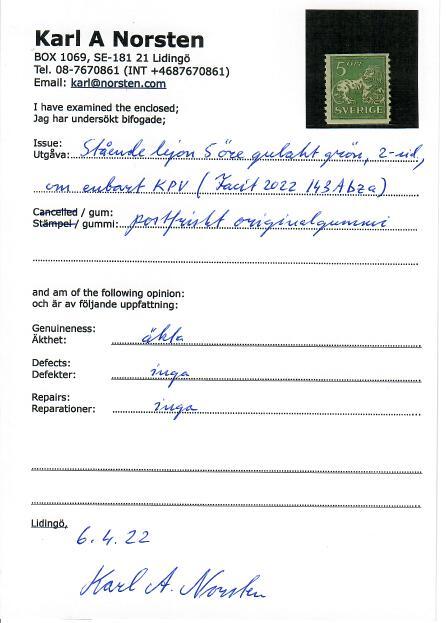 Karl A Norsten
BOX 1069, SE-181 21 Lidingö
Tel. 08-7670861 (INT +4687670861)
Email: karl@norsten.com
5 ÖRE
SVERIGE
I have examined the enclosed;
Jag har undersökt bifogade;
Issue:
Utgåva: Stående lejon 5 öre gulakt grön, 2-sid,
vm enbart KPV (Facit 2022 143Abza)
Cancelled / gum:
Stämpel / gummi: postfriskt originalgummi
and am of the following opinion:
och är av följande uppfattning:
Genuineness:
Äkthet: äkta
Defects:
Defekter: inga
Repairs:
Reparationer: inga
Lidingö,
6.4.22
Karl A. Norsten